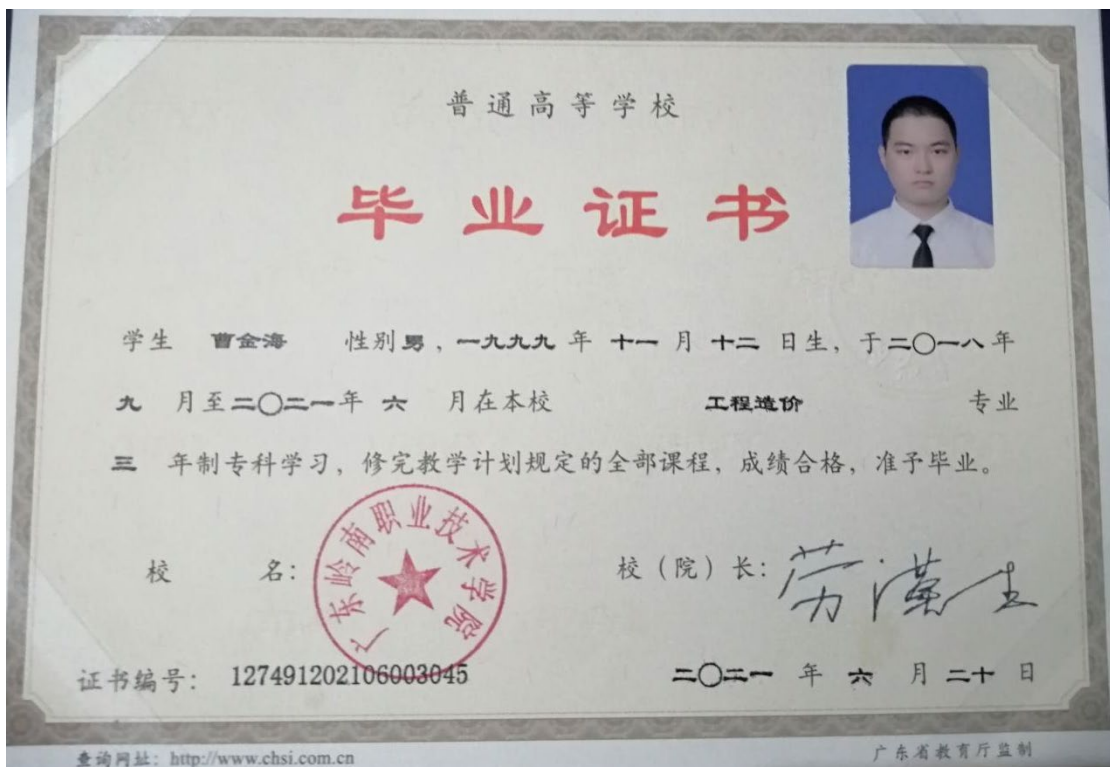 普通高等学校
毕业证书
学生 曹金海 性别男，一九九九年 十一 月 十二 日生，于二〇一八年
九 月至二〇二一年 六 月在本校 工程造价 专业
三 年制专科学习，修完教学计划规定的全部课程，成绩合格，准予毕业。
广东岭南职业技术学院
校 名： 校（院）长： 劳汉生
证书编号： 127491202106003045 二〇二一 年 六 月 二十 日
查询网址：http://www.chsi.com.cn 广东省教育厅监制